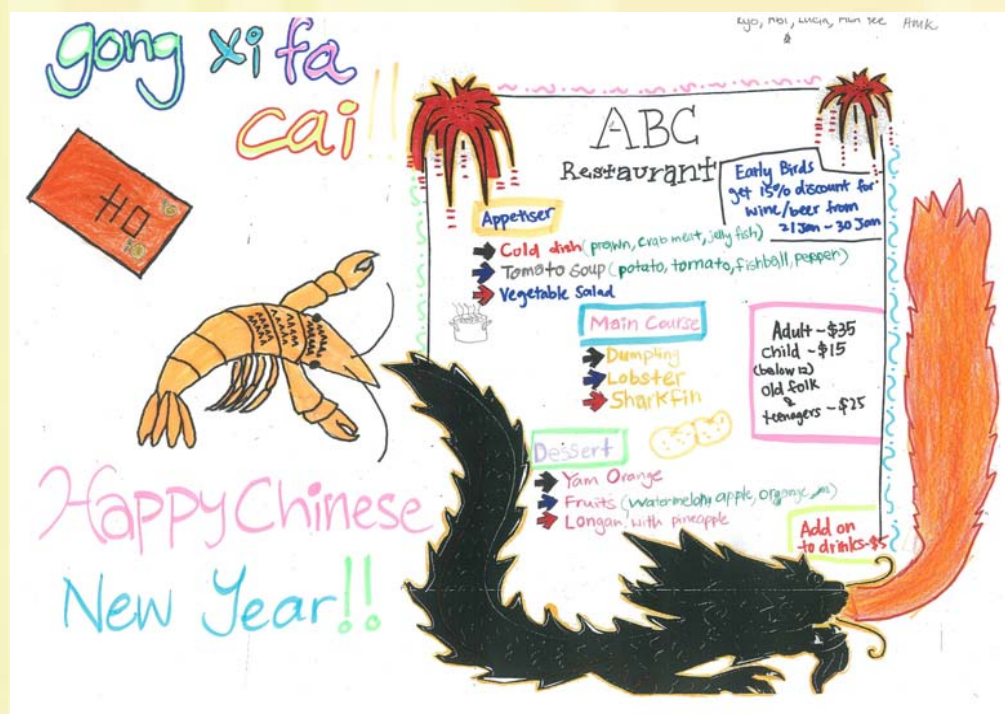 gong xi fa
cai!!
Amk
ABC
Restaurant
Early Birds
get 15% discount for
wine/beer from
21 Jan - 30 Jan
Appetiser
Cold dish (prawn, crab meat, jelly fish)
Tomato Soup (potato, tomato, fishball, pepper)
Vegetable Salad
Main Course
Dumpling
Lobster
Sharkfin
Adult - $35
Child - $15
(below 12)
Old folk
&
teenagers - $25
Dessert
Yam Orange
Fruits (watermelon, apple, organge
Longan with pineapple
Add on
to drinks-$5
Happy Chinese
New Year!!